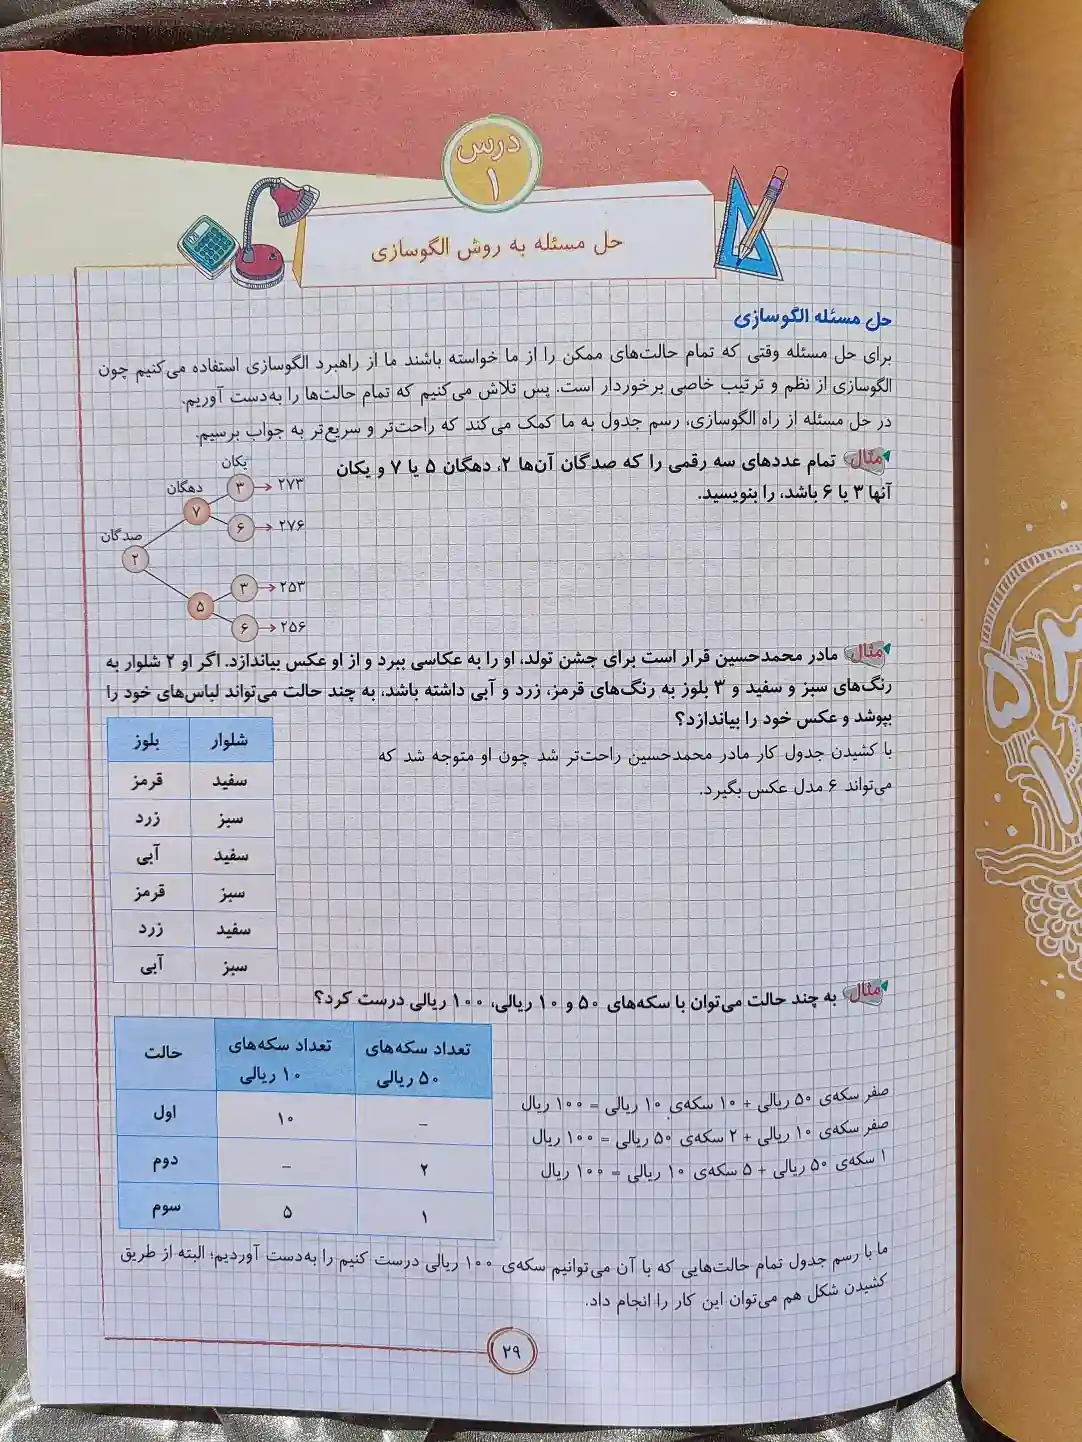 درس
۱
حل مسئله به روش الگوسازی
حل مسئله الگوسازی
برای حل مسئله وقتی که تمام حالت‌های ممکن را از ما خواسته باشند ما از راهبرد الگوسازی استفاده می‌کنیم چون
الگوسازی از نظم و ترتیب خاصی برخوردار است. پس تلاش می‌کنیم که تمام حالت‌ها را به‌دست آوریم.
در حل مسئله از راه الگوسازی، رسم جدول به ما کمک می‌کند که راحت‌تر و سریع‌تر به جواب برسیم.
مثال تمام عددهای سه رقمی را که صدگان آن‌ها ۲، دهگان ۵ یا ۷ و یکان
آنها ۳ یا ۶ باشد، را بنویسید.
صدگان دهگان یکان
۲
۷
۳ → ۲۷۳
۶ → ۲۷۶
۵
۳ → ۲۵۳
۶ → ۲۵۶
مثال مادر محمدحسین قرار است برای جشن تولد، او را به عکاسی ببرد و از او عکس بیاندازد. اگر او ۲ شلوار به
رنگ‌های سبز و سفید و ۳ بلوز به رنگ‌های قرمز، زرد و آبی داشته باشد، به چند حالت می‌تواند لباس‌های خود را
بپوشد و عکس خود را بیاندازد؟
با کشیدن جدول کار مادر محمدحسین راحت‌تر شد چون او متوجه شد که
می‌تواند ۶ مدل عکس بگیرد.
شلوار بلوز
سفید قرمز
سبز زرد
سفید آبی
سبز قرمز
سفید زرد
سبز آبی
مثال به چند حالت می‌توان با سکه‌های ۵۰ و ۱۰ ریالی، ۱۰۰ ریالی درست کرد؟
صفر سکه‌ی ۵۰ ریالی + ۱۰ سکه‌ی ۱۰ ریالی = ۱۰۰ ریال
صفر سکه‌ی ۱۰ ریالی + ۲ سکه‌ی ۵۰ ریالی = ۱۰۰ ریال
۱ سکه‌ی ۵۰ ریالی + ۵ سکه‌ی ۱۰ ریالی = ۱۰۰ ریال
تعداد سکه‌های ۵۰ ریالی تعداد سکه‌های ۱۰ ریالی حالت
– ۱۰ اول
۲ – دوم
۱ ۵ سوم
ما با رسم جدول تمام حالت‌هایی که با آن می‌توانیم سکه‌ی ۱۰۰ ریالی درست کنیم را به‌دست آوردیم؛ البته از طریق
کشیدن شکل هم می‌توان این کار را انجام داد.
۲۹